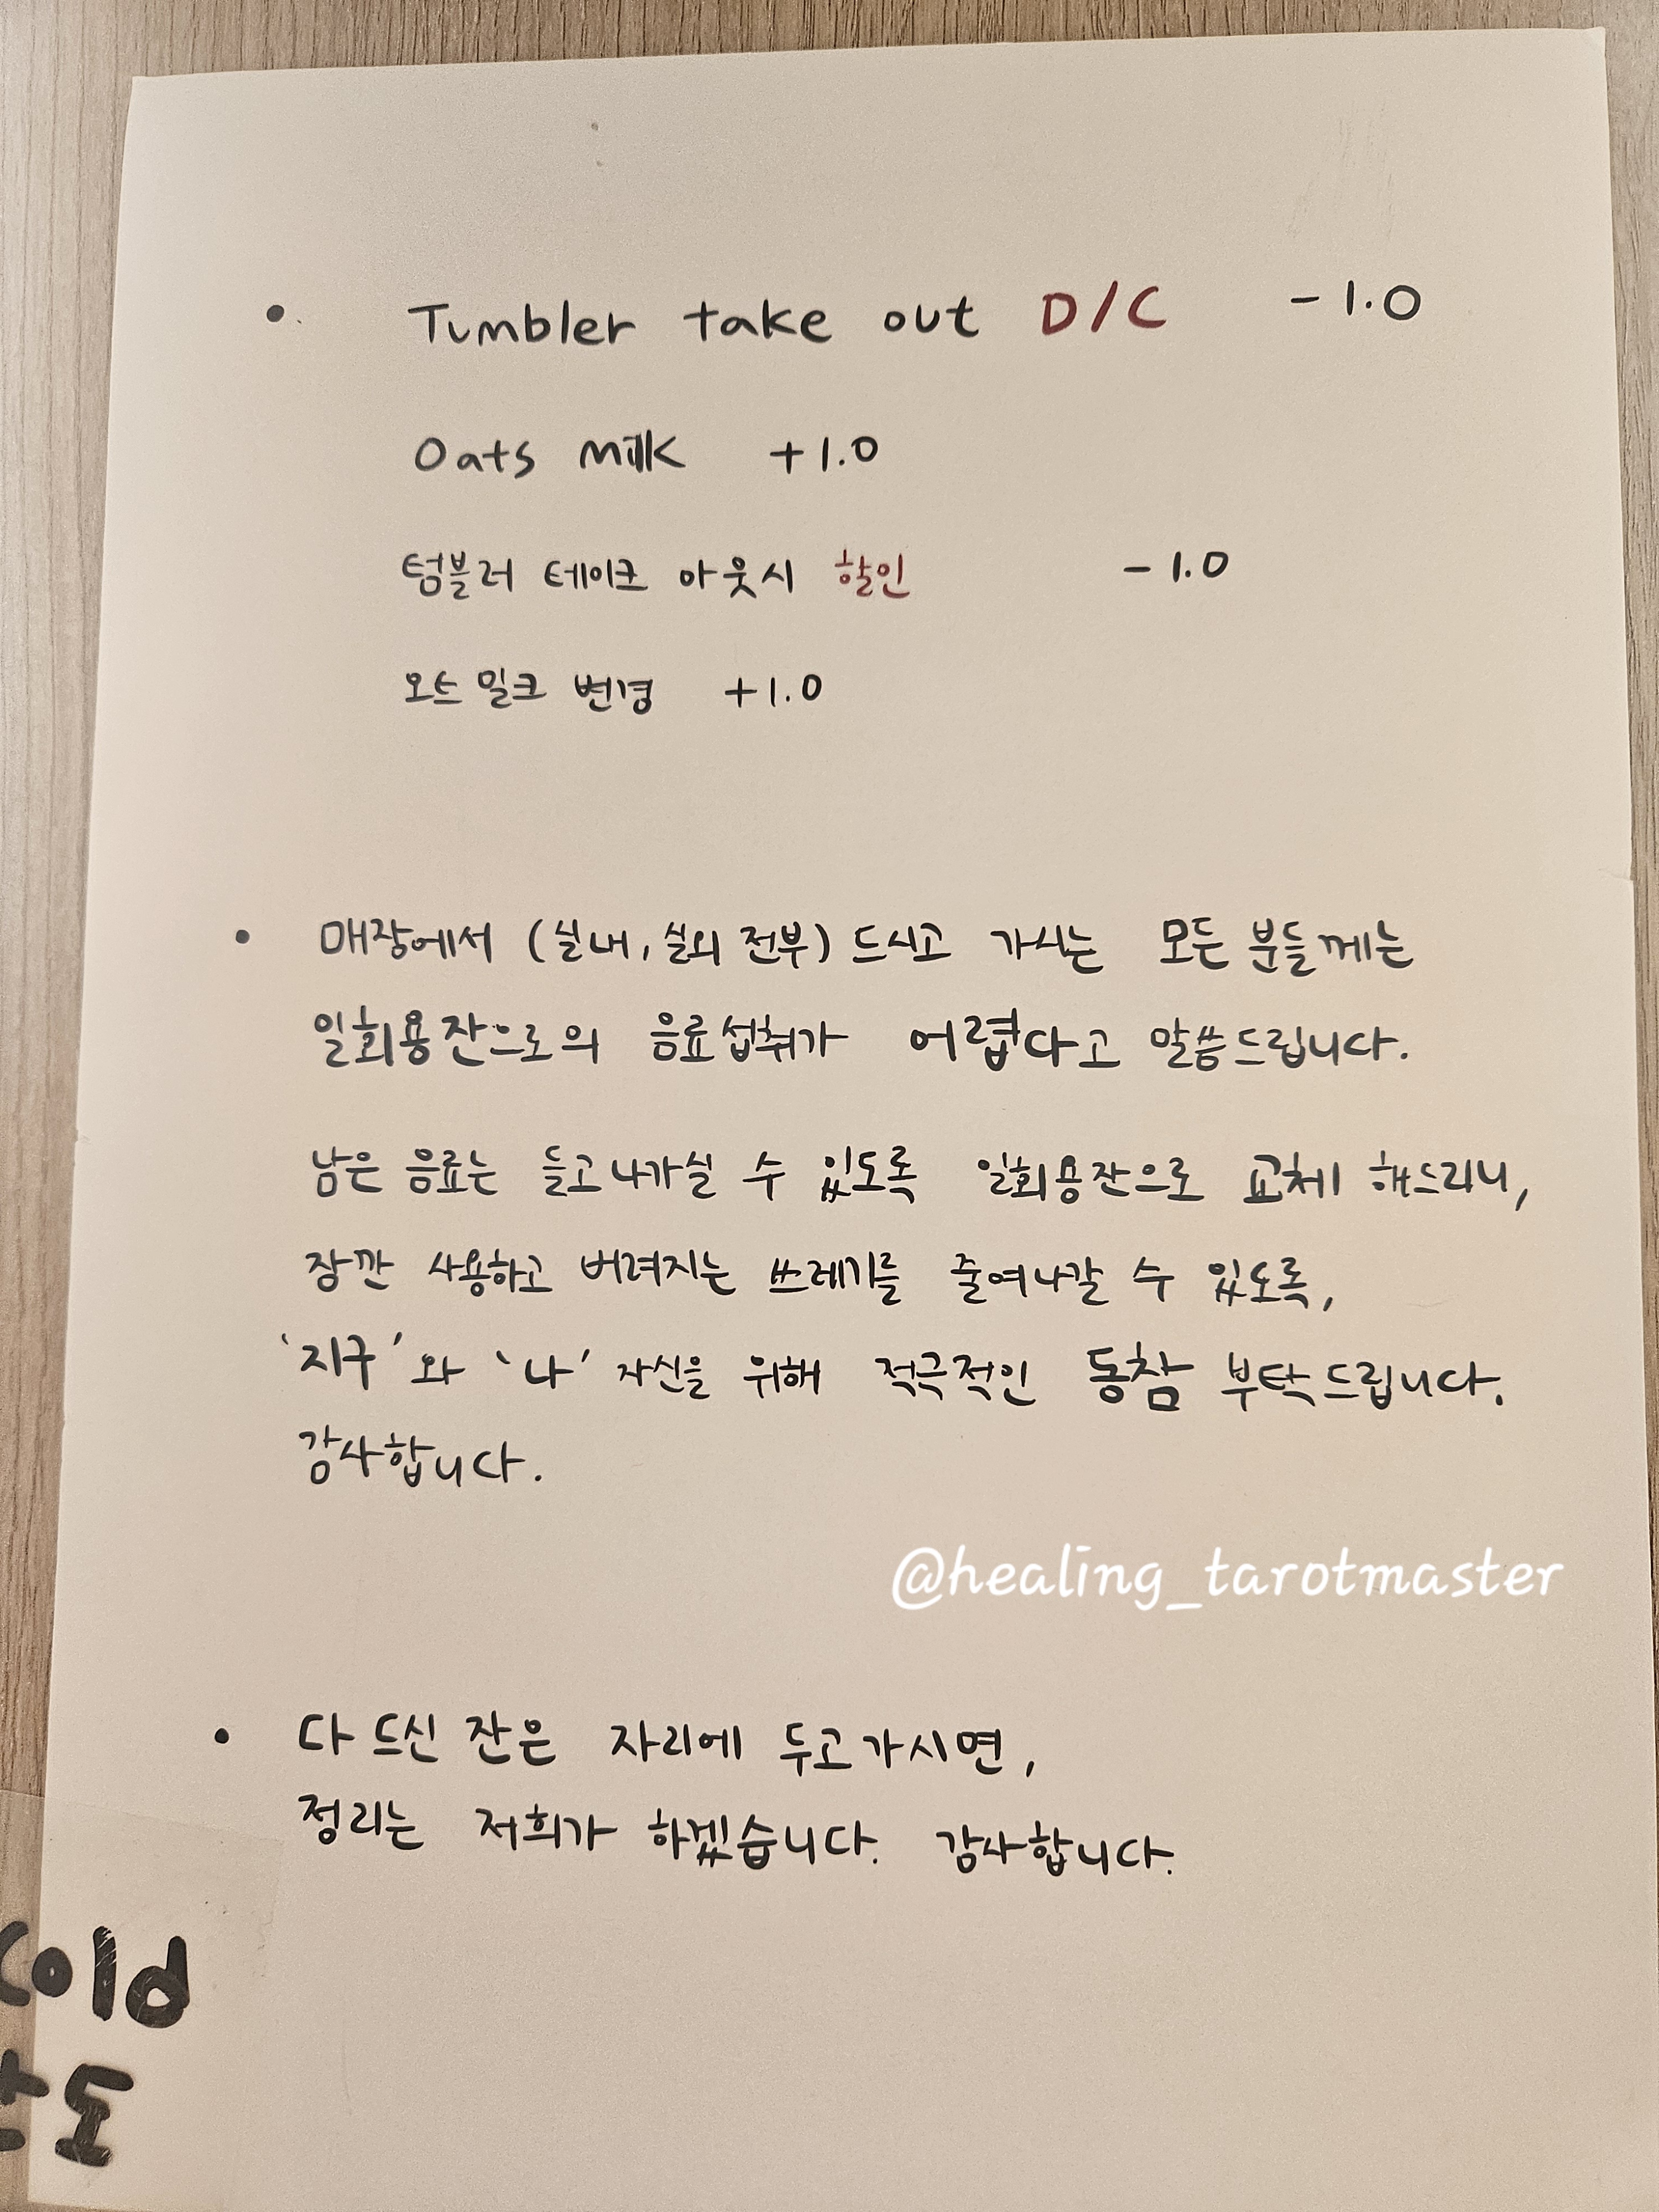 • Tumbler take out D/C -1.0
Oats milk +1.0
텀블러 테이크 아웃시 할인 -1.0
오트 밀크 변경 +1.0
• 매장에서 (실내, 실외 전부) 드시고 가시는 모든 분들께는
일회용잔으로의 음료섭취가 어렵다고 말씀드립니다.
남은 음료는 들고 나가실 수 있도록 일회용잔으로 교체 해드리니,
잠깐 사용하고 버려지는 쓰레기를 줄여나갈 수 있도록,
'지구'와 '나' 자신을 위해 적극적인 동참 부탁드립니다.
감사합니다.
@healing_tarotmaster
• 다 드신 잔은 자리에 두고 가시면,
정리는 저희가 하겠습니다. 감사합니다.
Cold